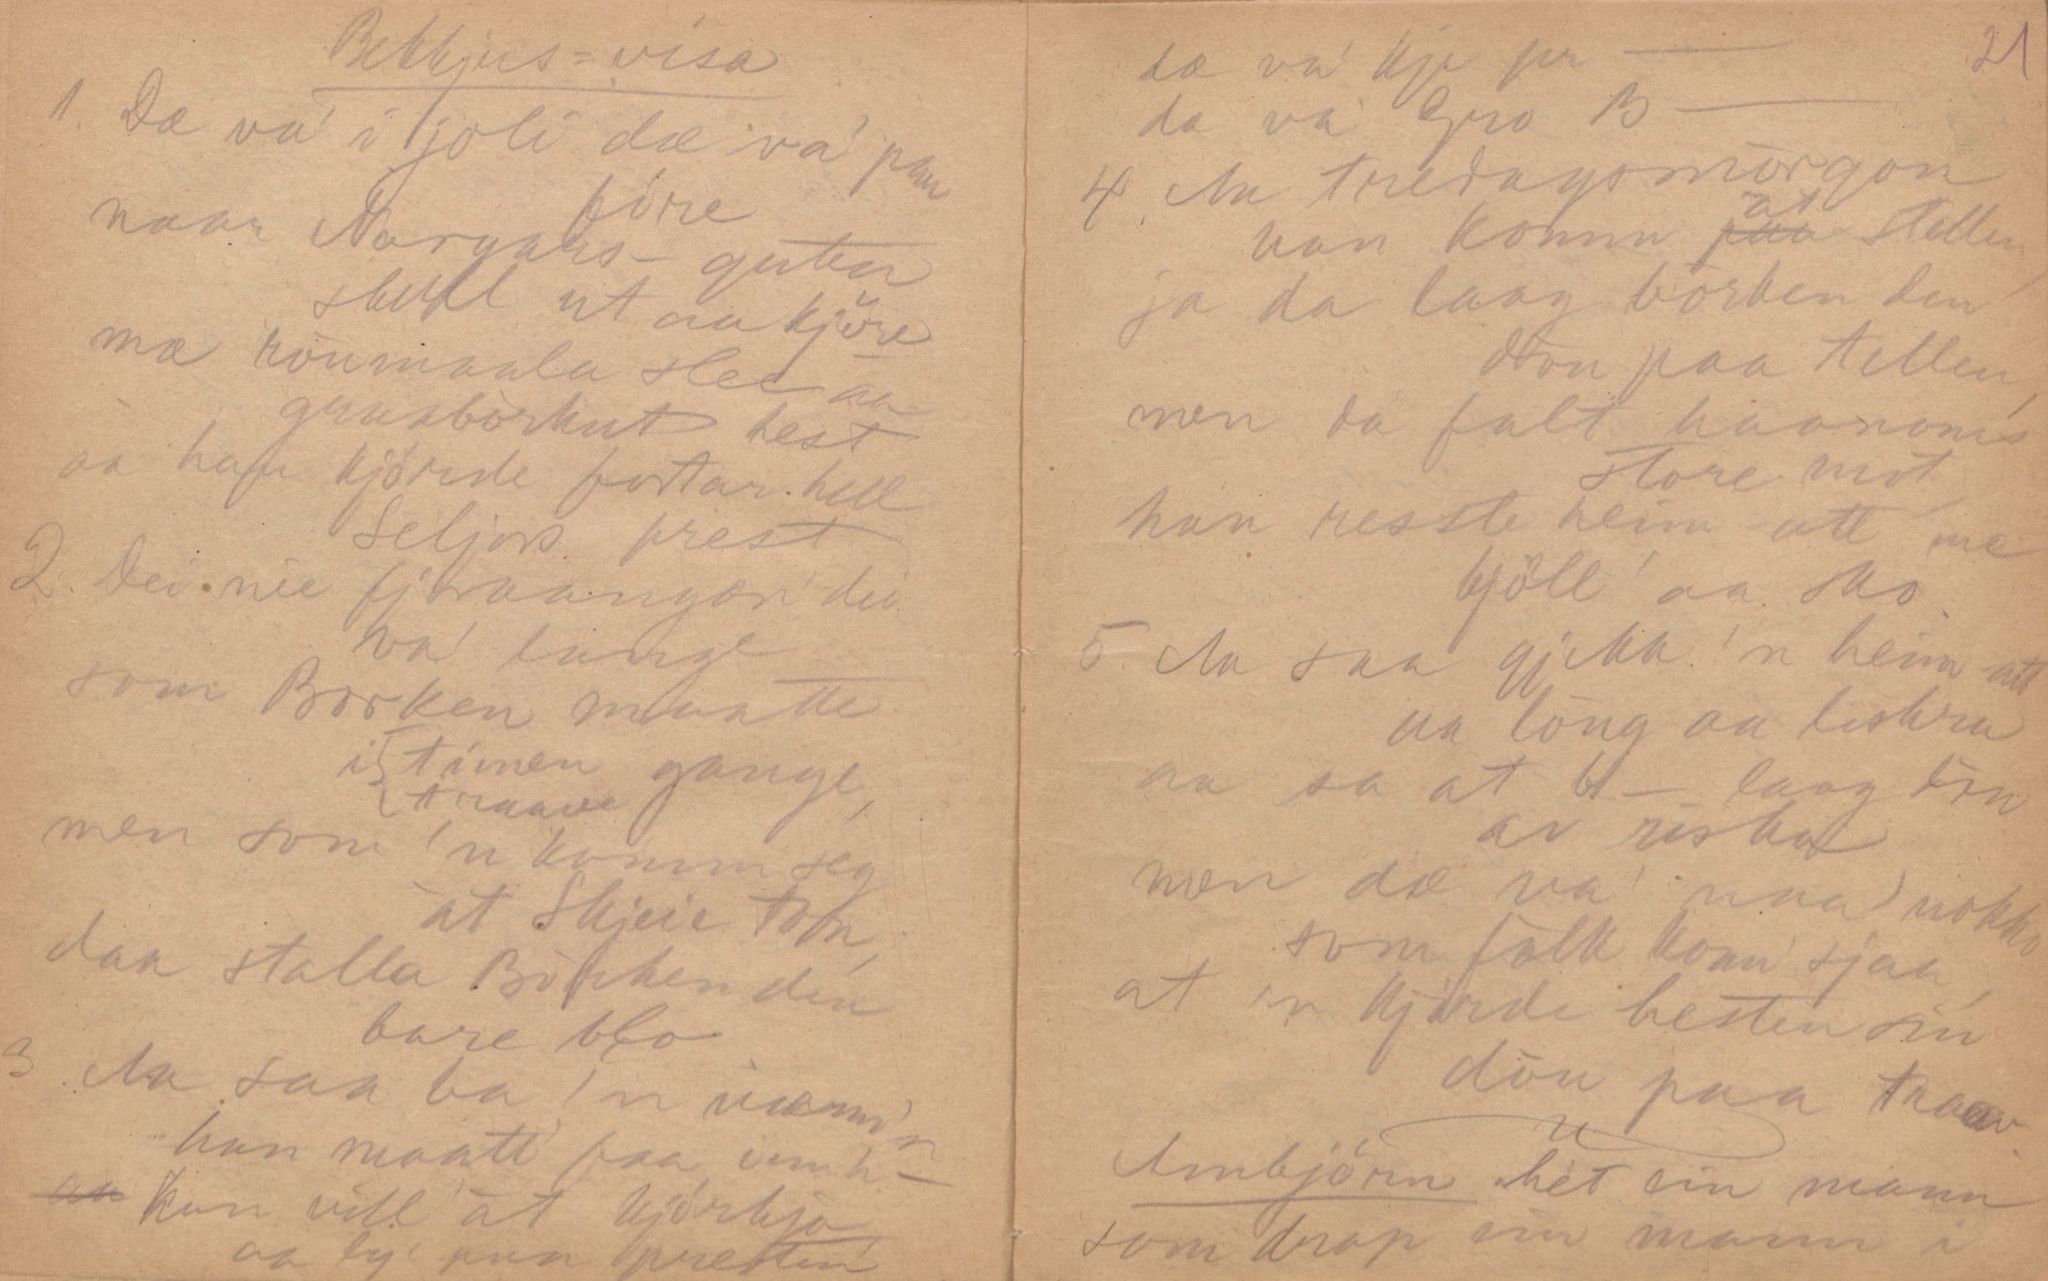 Bekkjus=visa
1. Dæ va' i joli dæ va' paa
före
naar Norgars- guten
skull ut aa kjöre
mæ rönmaala slee aa
graabòrkut hest
aa han kjörde fortar hell
Seljors prest
2. Dei nie fjoraangan' dei
va' lange
som Borken maatte
i { timen gange,
{ traave
men som 'n komm seg
åt Skjeie
daa stalla Börken den
bare blo
3 Aa saa ba 'n
han maatte faa
han vill åt kjörkja
aa ly' paa presten
21
dæ va' kje
da va' Gro B
4. Aa tredagsmòrgon
åt
han komm paa stallen,
ja da laag bòrken den
dön paa tellen,
men da falt haanoms
store mot
han resste heim att me
bjöll' aa sko.
5. Aa saa gjekk 'n heim att
aa löng aa
aa sa at b— laag dön
av
men dæ va' naa nokko
som fålk konn' sjaa,
at 'n kjörde hesten sin
dön paa traav
Ambjörn hét ein mann
som drap ein mann i